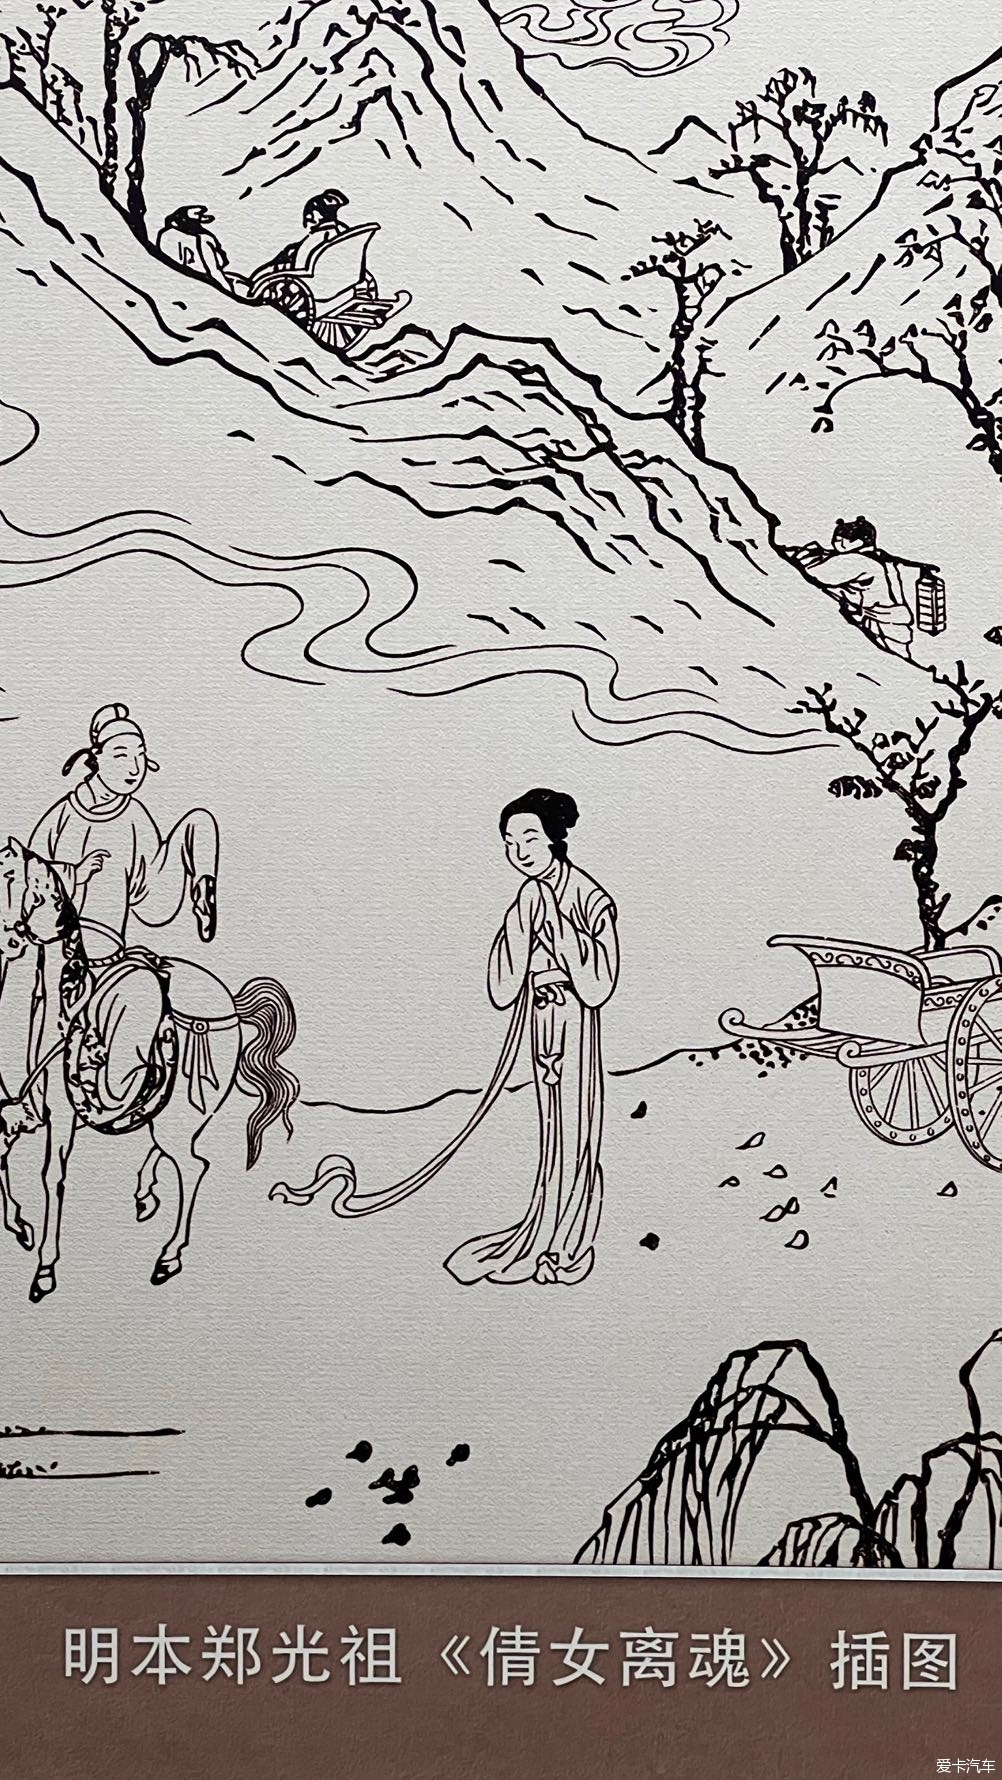 明本郑光祖《倩女离魂》插图
爱卡汽车